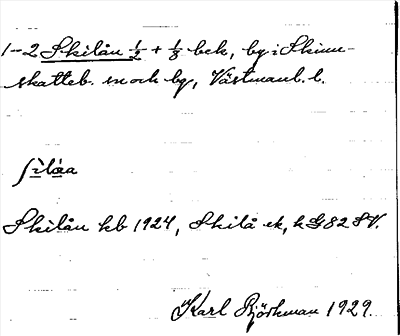 1-2 Skilån ½ + ⅛ bek, by i Skinn-
skatteb. sn och bg, Västmanl. l.
ʃìlὰa
Skilån kb 1924, Skilå ek, k G82 SV.
Karl Björkman 1929.